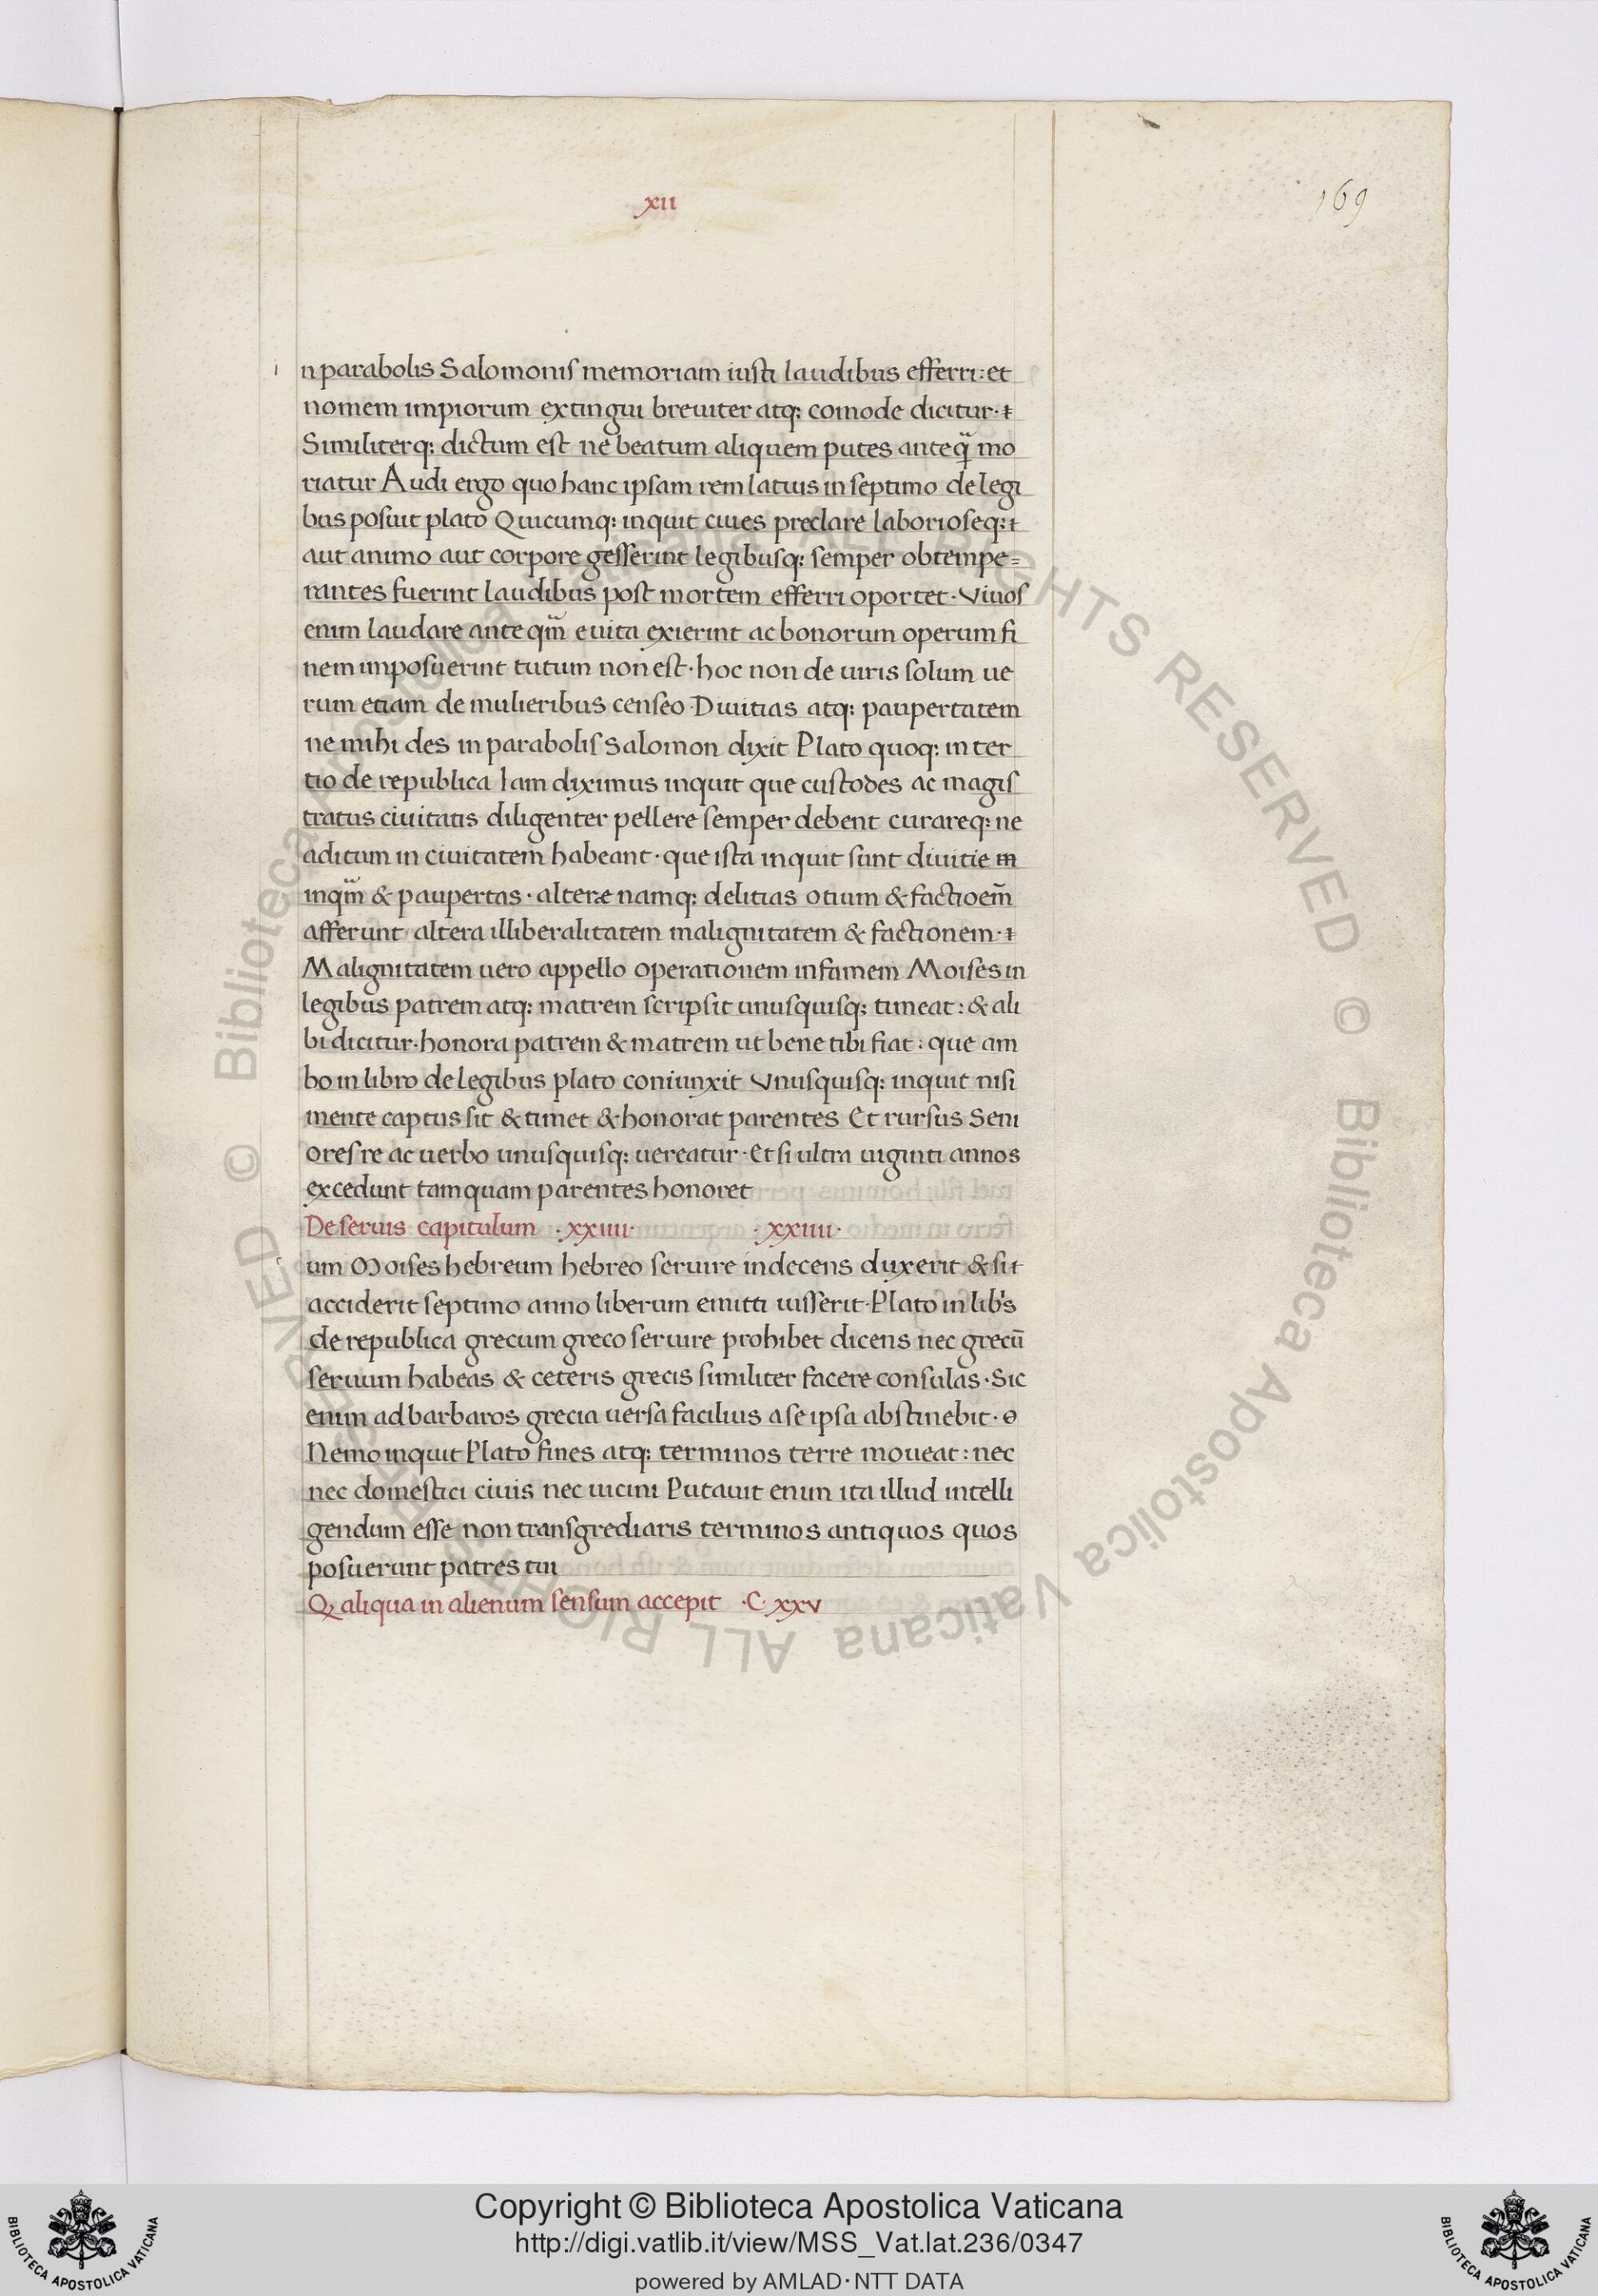 xii
169
i n parabolis Salomonis memoriam iusti laudibus efferri: et
nomem impiorum extingui breuiter atq: comode dicitur·
Similiterq: dictum est ne beatum aliquem putes anteq̃ mo
riatur Audi ergo quo hanc ipsam rem latius in septimo de legi
bus posuit plato Quicumq: inquit ciues preclare laborioseq:
aut animo aut corpore gesserint legibusq: semper obtempe=
rantes fuerint laudibus post mortem efferri oportet· Viuos
enim laudare ante qm̃ e uita exierint ac bonorum operum fi
nem imposuerint tutum non est· hoc non de uiris solum ue
rum etiam de mulieribus censeo Diuitias atq: paupertatem
ne mihi des in parabolis salomon dixit Plato quoq: in ter
tio de republica Iam diximus inquit que custodes ac magis
tratus ciuitatis diligenter pellere semper debent curareq: ne
aditum in ciuitatem habeant· que ista inquit sunt diuitie
inqm̃ & paupertas· alteræ namq: delitias otium & factioem̃
afferunt altera illiberalitatem malignitatem & factionem·
Malignitatem uero appello operationem infamem Moises in
legibus patrem atq: matrem scripsit unusquisq: timeat: & ali
bi dicitur· honora patrem & matrem ut bene tibi fiat: que am
bo in libro de legibus plato coniunxit Vnusquisq: inquit nisi
mente captus sit & timet & honorat parentes Et rursus Seni
ores re ac uerbo unusquisq: uereatur· Et si ultra uiginti annos
excedunt tamquam parentes honoret
De seruis capitulum ·xxiiii· ·xxiiii·
c um Moises hebreum hebreo seruire indecens duxerit & sit
acciderit septimo anno liberum emitti iusserit· Plato in lib's
de republica grecum greco seruire prohibet dicens nec grecū
seruum habeas & ceteris grecis similiter facere consulas· Sic
enim ad barbaros grecia uersa facilius a se ipsa abstinebit·
Nemo inquit Plato fines atq: terminos terre moueat: nec
nec domestici ciuis nec uicini Putauit enim ita illud intelli
gendum esse non transgrediaris terminos antiquos quos
posuerunt patres tui
Q aliqua in alienum sensum accepit ·C· xxv
Copyright © Biblioteca Apostolica Vaticana
http://digi.vatlib.it/view/MSS_Vat.lat.236/0347
powered by AMLAD·NTT DATA
BIBLIOTECA APOSTOLICA VATICANA
BIBLIOTECA APOSTOLICA VATICANA
© Biblioteca Apostolica Vaticana ALL RIGHTS RESERVED
© Biblioteca Apostolica Vaticana ALL RIGHTS RESERVED